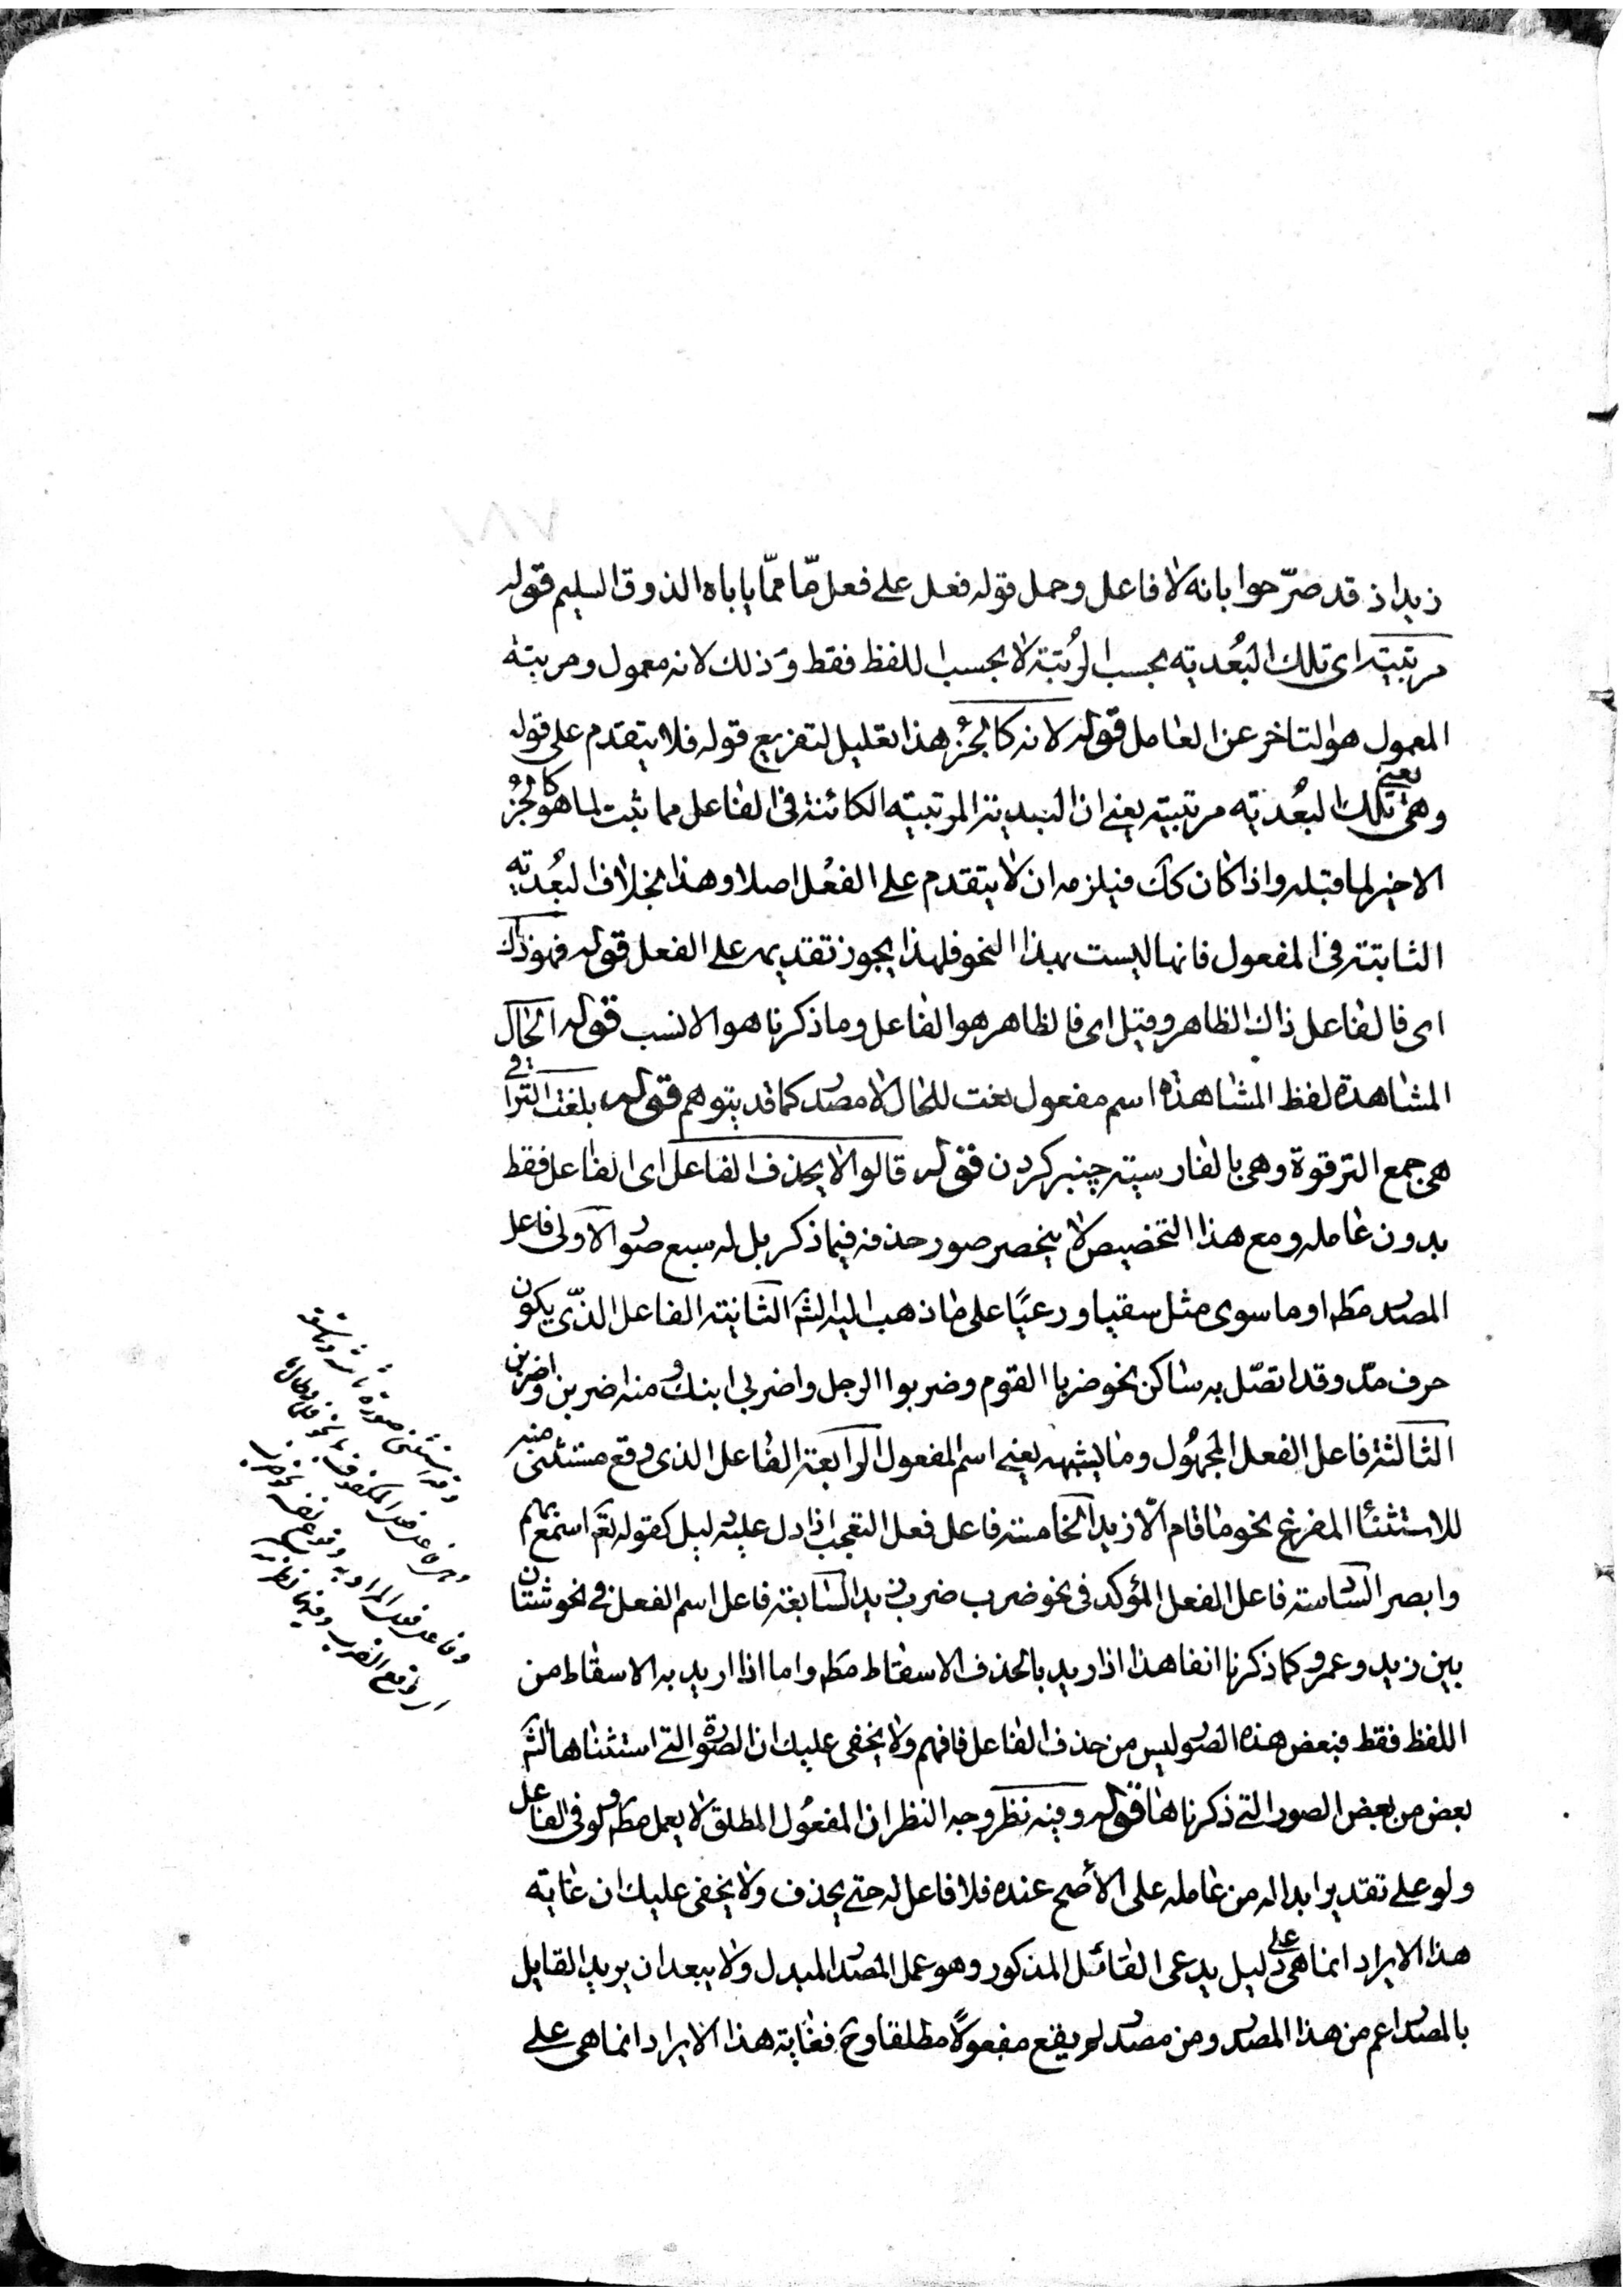 زيد اذ قد صرّحوا بانه لا فاعل وحمل قوله فعل على فعل مّا ممّا ياباه الذوق السليم قوله
مرتبيته اى تلك البُعديه بحسب الرُتبة لا بحسب اللفظ فقط وذلك لانه معمول ومرتبته
المعمول هو التاخر عن العامل قوله لانه كالجُزء هذا تعليل لتفريع قوله فلا يتقدم على قوله
وهى يعنى تلك البُعديه مرتبيته يعنى ان البعدية المرتبيته الكائنة فى الفاعل مما يثبت لما هو كالجُزء
الاخير لما قبله واذا كان كك فيلزمه ان لا يتقدم على الفعل اصلا وهذا بخلاف البُعديه
الثابتة فى المفعول فانها ليست بهذا النحو فلهذا يجوز تقديمه على الفعل قوله فهو ذاك
اى فالفاعل ذاك الظاهر وقيل اى فالظاهر هو الفاعل وما ذكرنا هو الانسب قوله الحال
المشاهدة لفظ المشاهدة اسم مفعول نعت للحال لا مصدر كما قد يتوهم قوله بلغت التراقى
هى جمع الترقوة وهى بالفارسيته چنبر كردن قوله قالوا لا يحذف الفاعل اى الفاعل فقط
بدون عامله ومع هذا التخصيص لا ينحصر صور حذفه فيما ذكر بل له سبع صور الاولى فاعل
المصدر مطه او ما سوى مثل سقيا ورعيًا على ما ذهب اليه الشه الثانيته الفاعل الذى يكون
حرف مدّ وقد اتصّل به ساكن نحو ضربا القوم وضربوا الرجل واضربى ابنك ومنه اضربن واضربن
الثالثة فاعل الفعل المجهُول وما يشبهه يعنى اسم المفعول الرابعة الفاعل الذى وقع مستثنى منه
للاستثناء المفرغ نحو ما قام الّا زيد الخامسة فاعل فعل التعجب اذا دل عليه دليل كقوله تعه اسمع بهم
وابصر السادسة فاعل الفعل المؤكد فى نحو ضرب ضرب زيد السابعة فاعل اسم الفعل فى نحو شتان
بين زيد وعمرو كما ذكرنا انفا هذا اذا اريد بالحذف الاسقاط مطه واما اذا اريد به الاسقاط من
اللفظ فقط فبعض هذه الصور ليس من حذف الفاعل فافهم ولا يخفى عليك ان الصورة التى استثناها الشه
بعض من بعض الصور التى ذكرناها قوله وفيه نظر وجه النظر ان المفعُول المطلق لا يعمل مطه ولو فى الفاعل
ولو على تقدير ابداله من عامله على الأصح عنده فلا فاعل له حتى يحذف ولا يخفى عليك ان غايه
هذا الايراد انما هى على دليل يدعى القائل المذكور وهو عمل المصدر المبدل ولا يبعد ان يريد القايل
بالمصدر اعم من هذا المصدر ومن مصدر لم يقع مفعولًا مطلقا وح فغاية هذا الايراد انما هى على